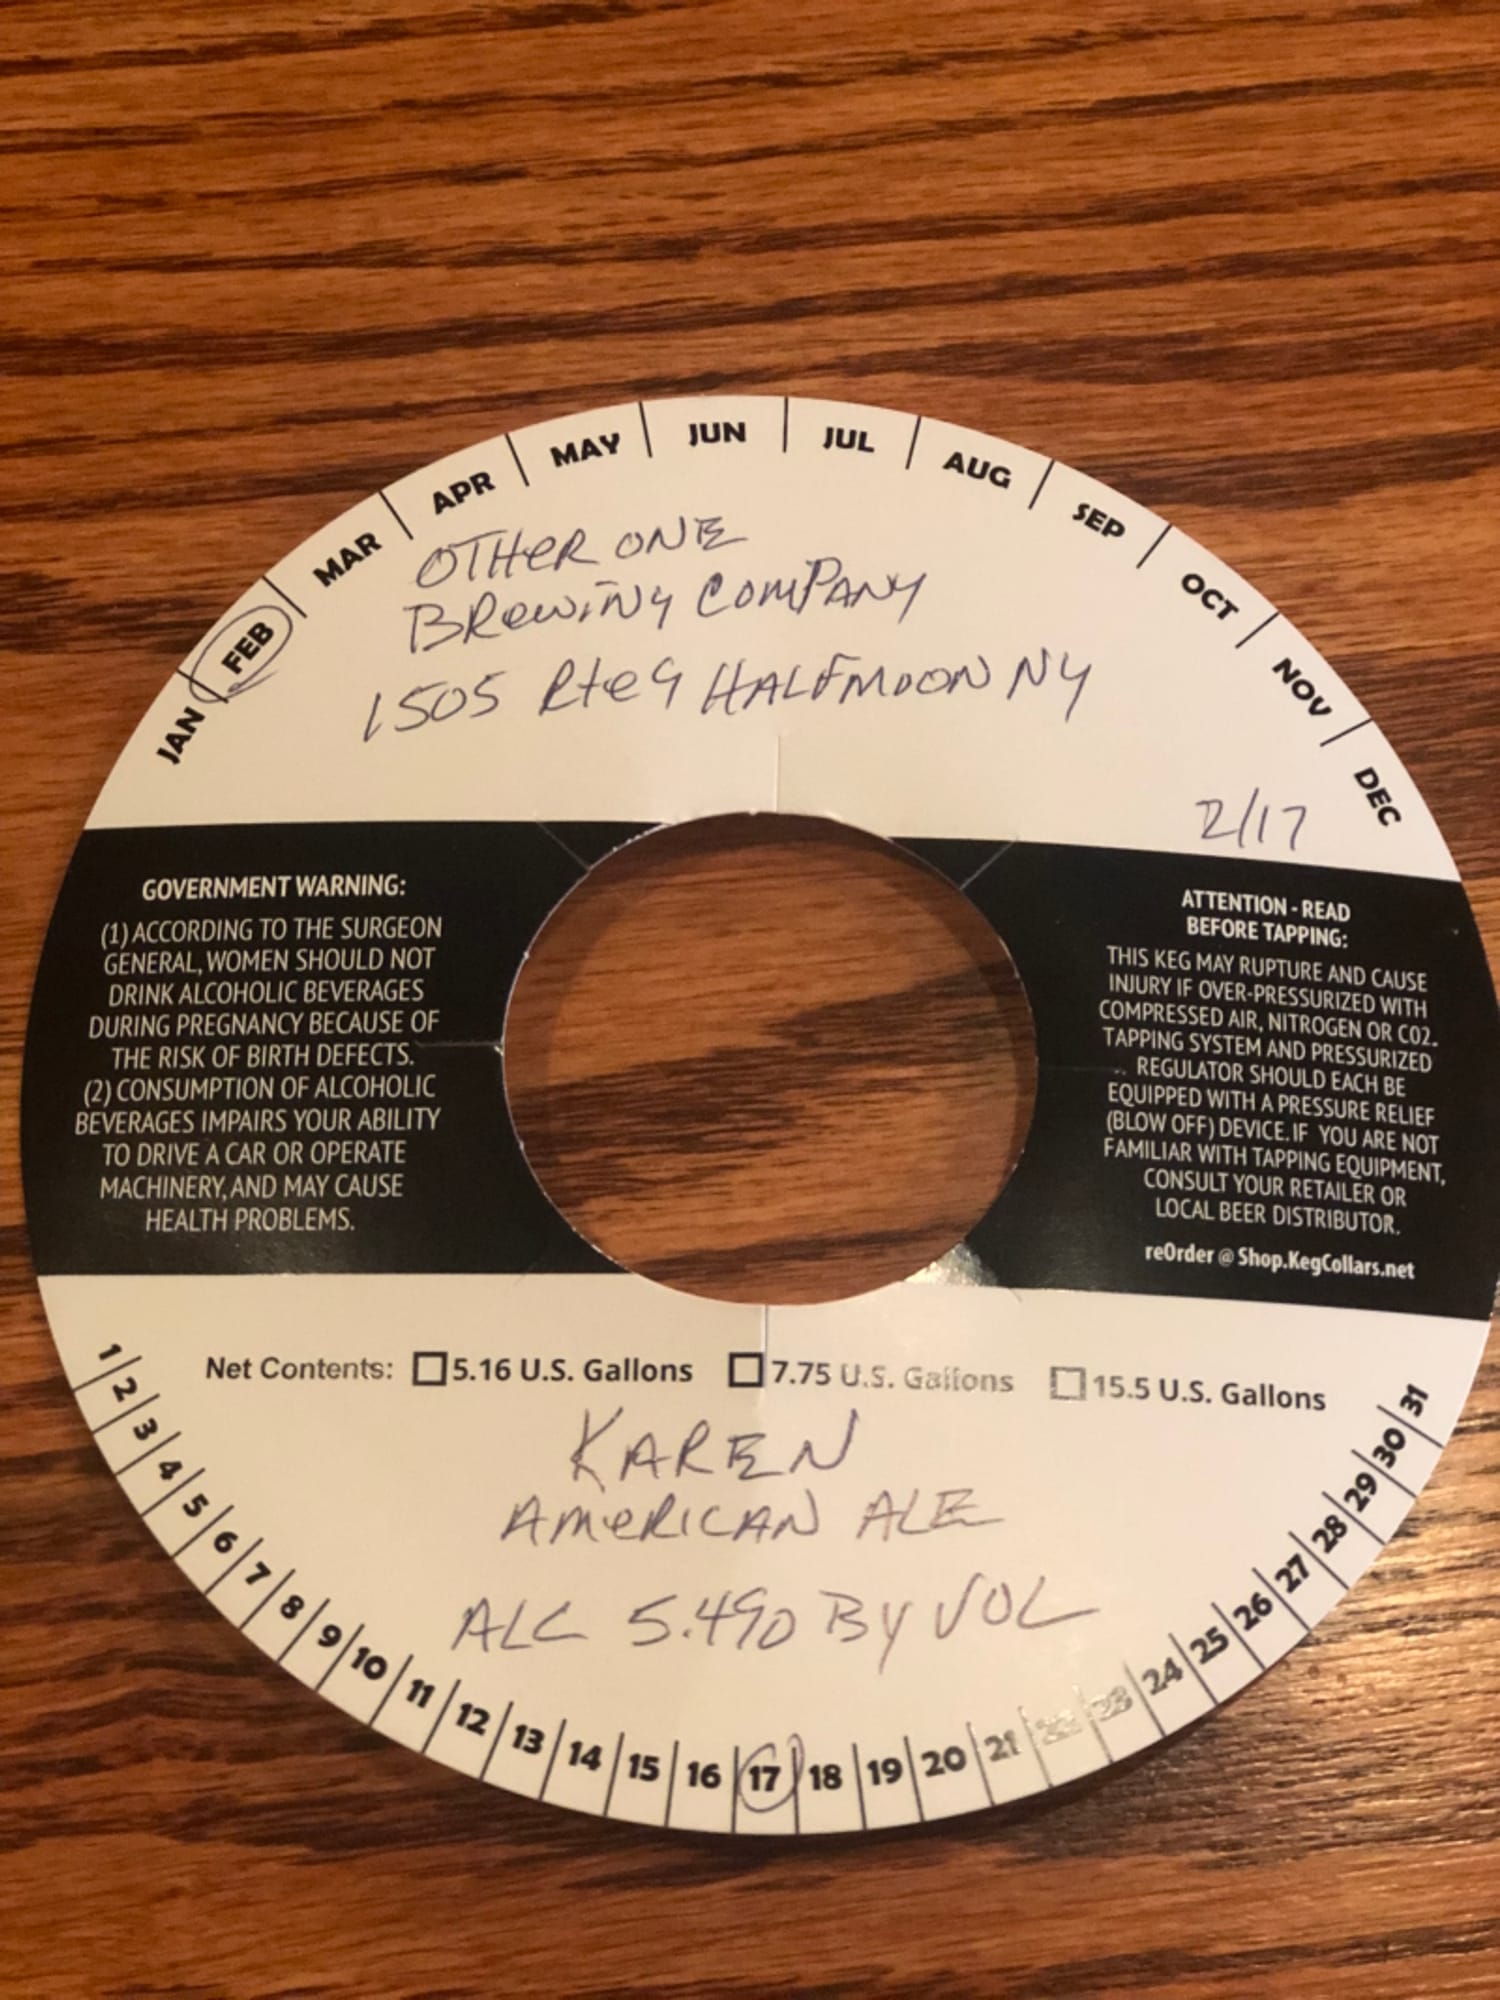 JAN FEB MAR APR MAY JUN JUL AUG SEP OCT NOV DEC
OTHER ONE
BREWING COMPANY
1505 Rte 9 HALFMOON NY
2/17
GOVERNMENT WARNING:
(1) ACCORDING TO THE SURGEON
GENERAL, WOMEN SHOULD NOT
DRINK ALCOHOLIC BEVERAGES
DURING PREGNANCY BECAUSE OF
THE RISK OF BIRTH DEFECTS.
(2) CONSUMPTION OF ALCOHOLIC
BEVERAGES IMPAIRS YOUR ABILITY
TO DRIVE A CAR OR OPERATE
MACHINERY, AND MAY CAUSE
HEALTH PROBLEMS.
ATTENTION - READ
BEFORE TAPPING:
THIS KEG MAY RUPTURE AND CAUSE
INJURY IF OVER-PRESSURIZED WITH
COMPRESSED AIR, NITROGEN OR CO2.
TAPPING SYSTEM AND PRESSURIZED
REGULATOR SHOULD EACH BE
EQUIPPED WITH A PRESSURE RELIEF
(BLOW OFF) DEVICE. IF YOU ARE NOT
FAMILIAR WITH TAPPING EQUIPMENT,
CONSULT YOUR RETAILER OR
LOCAL BEER DISTRIBUTOR.
reOrder @ Shop.KegCollars.net
Net Contents: 5.16 U.S. Gallons 7.75 U.S. Gallons 15.5 U.S. Gallons
KAREN
AMERICAN ALE
ALC 5.4% BY VOL
1 2 3 4 5 6 7 8 9 10 11 12 13 14 15 16 17 18 19 20 21 22 23 24 25 26 27 28 29 30 31